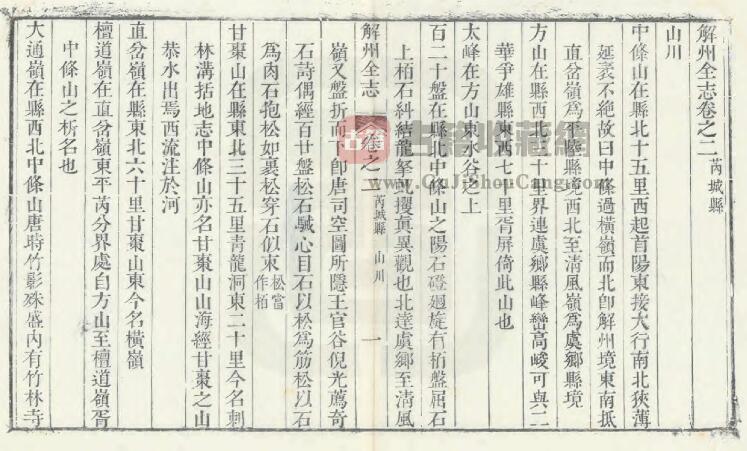 解州全志卷之二 芮城縣
山川
中條山在縣北十五里西起首陽東接大行南北狹薄
延袤不絶故曰中條過橫嶺而北卽解州境東南抵
直岔嶺爲平陸縣境西北至淸風嶺爲虞鄕縣境
方山在縣西北十里界連虞鄕縣峰巒高峻可與二
華爭雄縣東西七十里胥屏倚此山也
太峰在方山東水谷之上
百二十盤在縣北中條山之陽石磴廻旋有栢盤屈石
上栢石糾結龍拏攫眞異觀也北達虞鄕至淸風
解州全志 卷之二 芮城縣 山川 一
嶺又盤折而下卽唐司空圖所隱王官谷倪光薦奇
石詩偶經百廿盤松石駴心目石以松爲筋松以石
爲肉石抱松如裹松穿石似束 松當作栢
甘棗山在縣東北三十五里靑龍洞東二十里今名刺
林溝括地志中條山亦名甘棗山山海經甘棗之山
恭水出焉西流注於河
直岔嶺在縣東北六十里甘棗山東今名橫嶺
檀道嶺在直岔嶺東平芮分界處自方山至檀道嶺胥
中條山之析名也
大通嶺在縣西北中條山唐時竹影殊盛內有竹林寺
古籍收藏網
www.GuJiShouCang.com